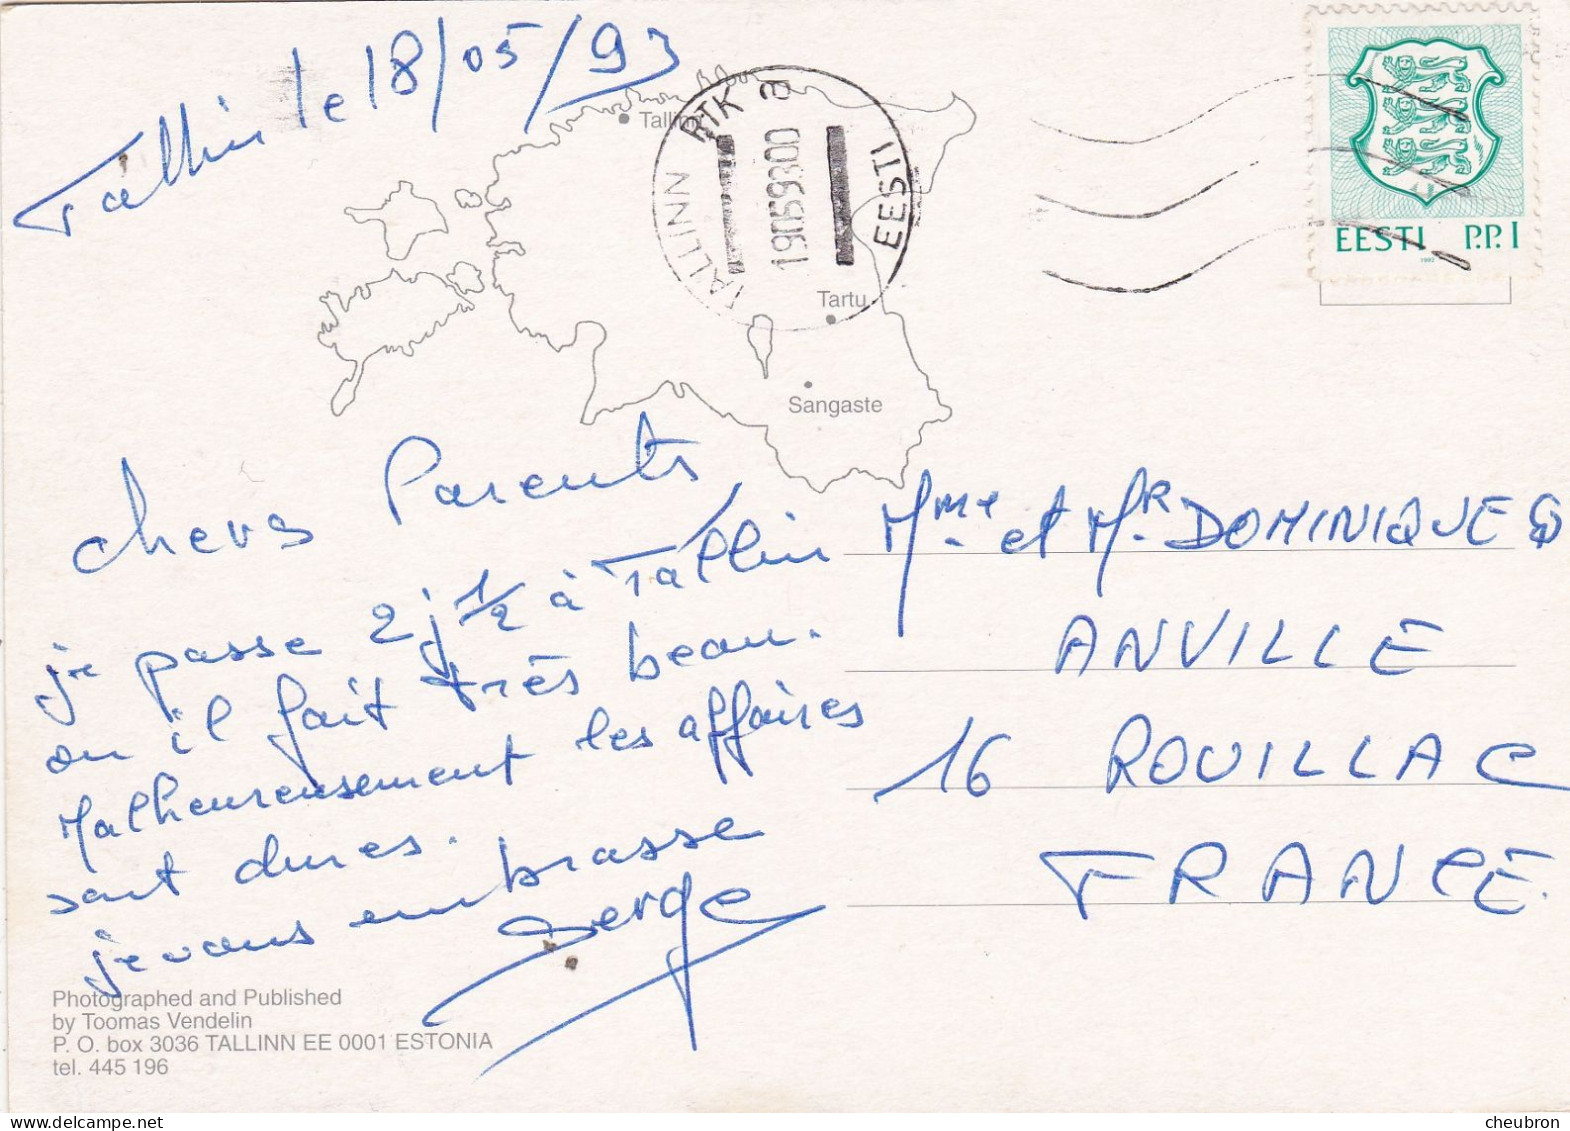 Tallin le 18/05/93
Tallinn
TALLINN RTK a
19059300
EESTI
EESTI P.P. I
1992
Tartu
Sangaste
chers Parents
je passe 2 j 1/2 à Tallin
ou il fait très beau.
Malheureusement les affaires
sont dures.
je vous embrasse
Serge
Mme et Mr DOMINIQUE
ANVILLE
16 ROUILLAC
FRANCE.
Photographed and Published
by Toomas Vendelin
P. O. box 3036 TALLINN EE 0001 ESTONIA
tel. 445 196
cheubron